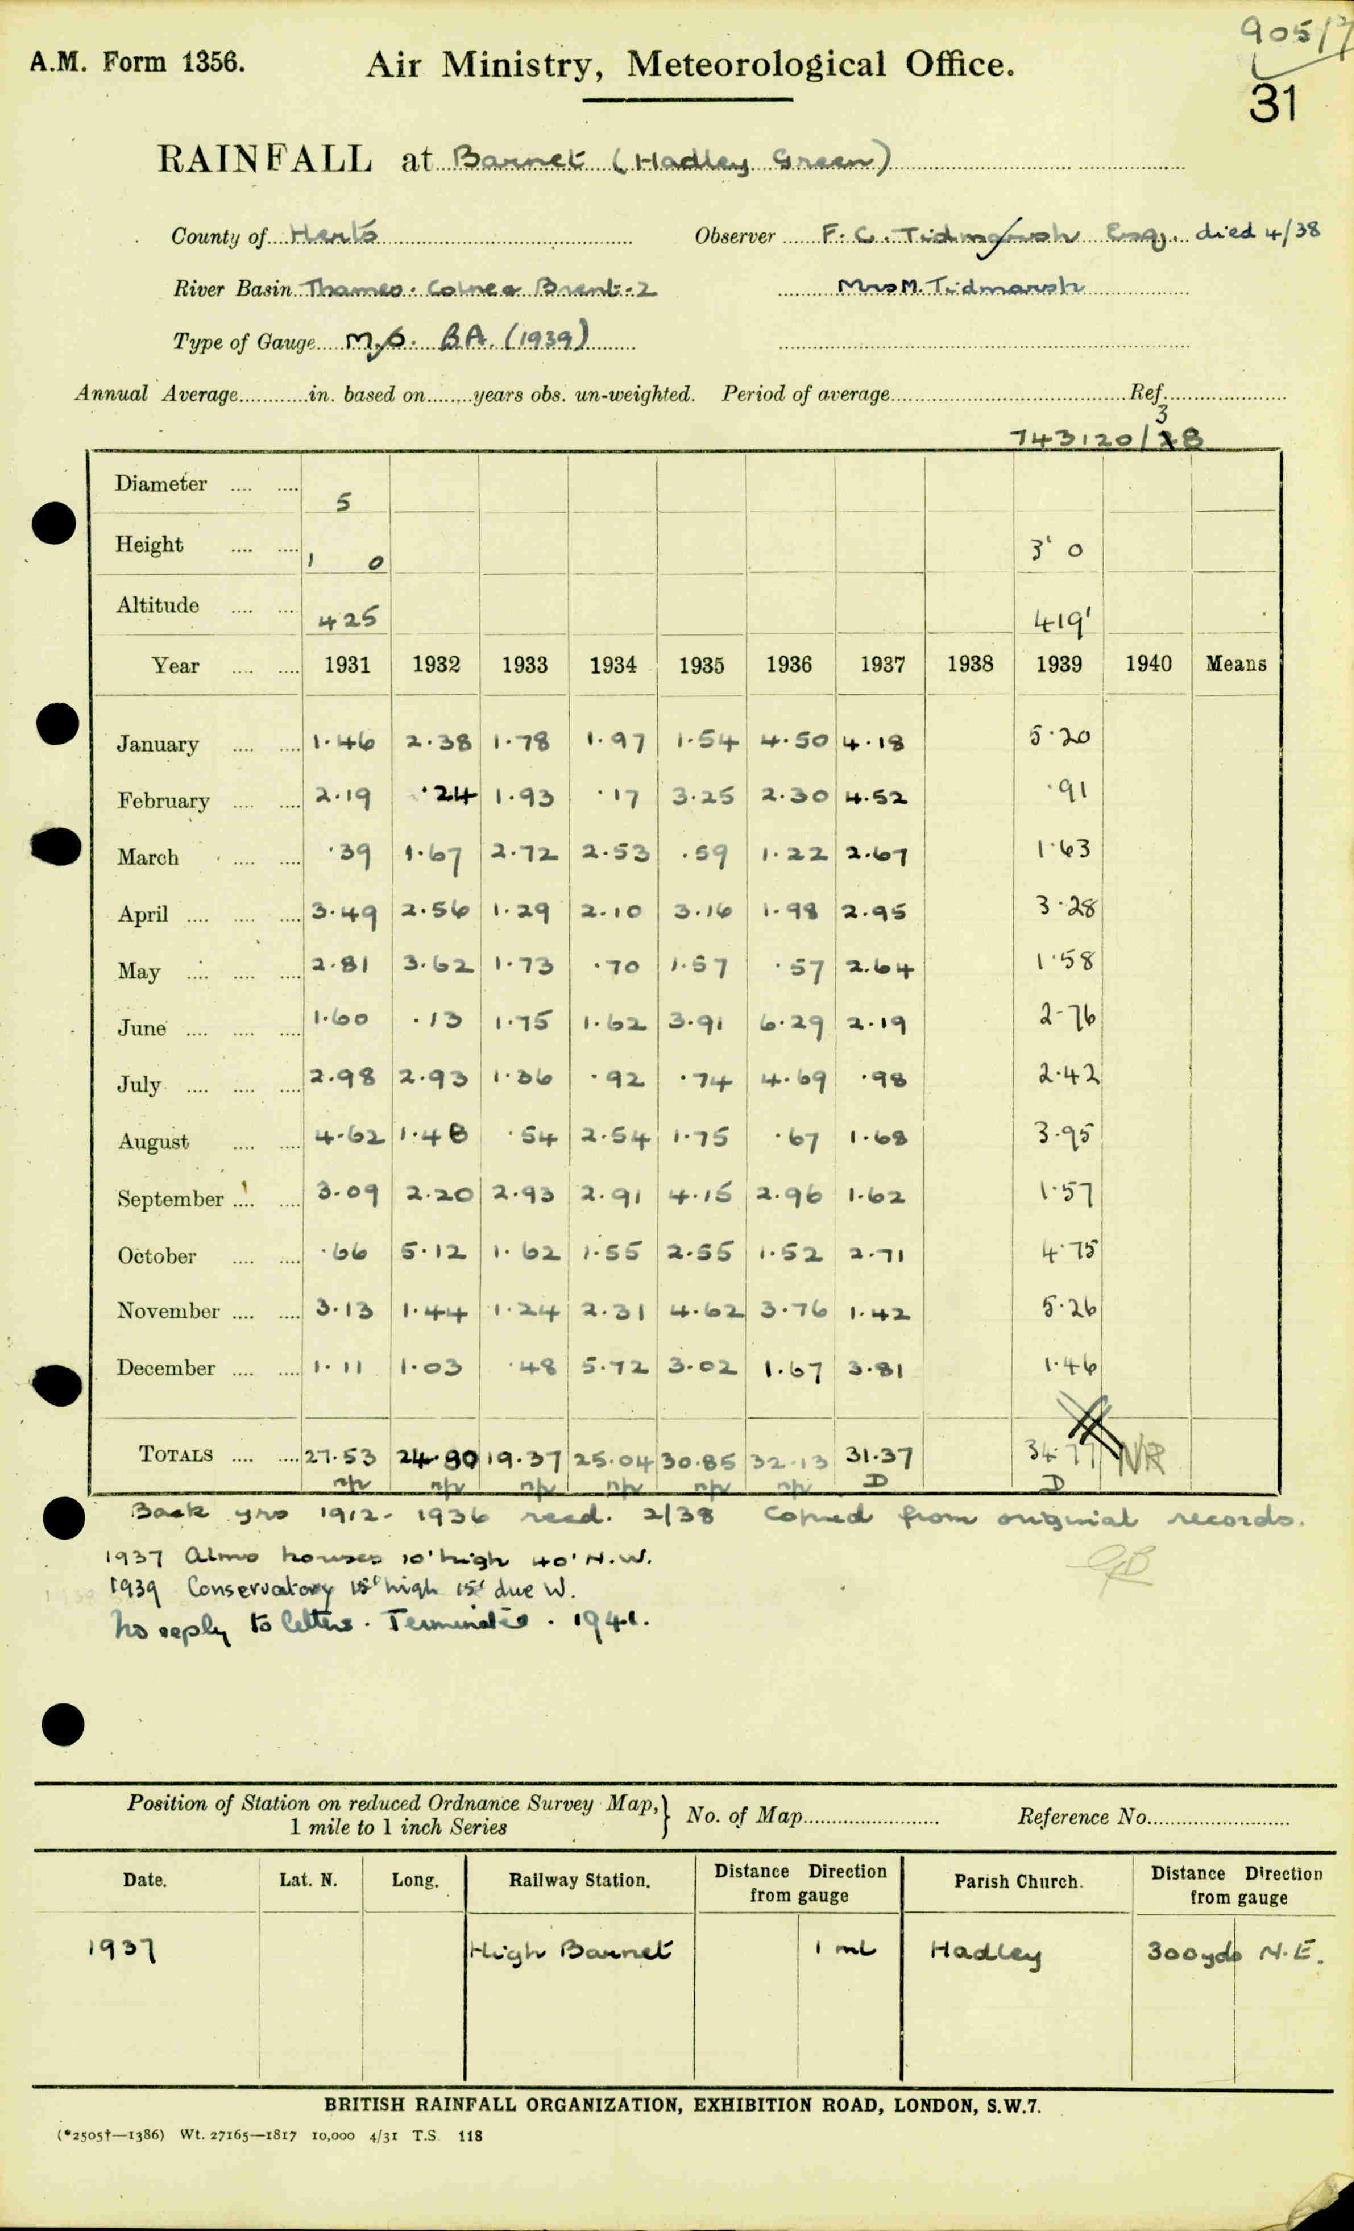 90517
A.M. Form 1356. Air Ministry, Meteorological Office.
31
RAINFALL at Barnet (Hadley Green)
County of Herts Observer F. C. Tidmarsh Esq. died 4/38
River Basin Thames. Colne & Brent.2 Mrs M. Tidmarsh
Type of Gauge M.O. BA. (1939)
Annual Average in. based on years obs. un-weighted. Period of average Ref.
743120/38
Diameter 5
Height 1 0 3' 0
Altitude 425 419'
Year 1931 1932 1933 1934 1935 1936 1937 1938 1939 1940 Means
January 1.46 2.38 1.78 1.97 1.54 4.50 4.18 5.20
February 2.19 .24 1.93 .17 3.25 2.30 4.52 .91
March .39 1.67 2.72 2.53 .59 1.22 2.67 1.63
April 3.49 2.56 1.29 2.10 3.16 1.98 2.95 3.28
May 2.81 3.62 1.73 .70 1.57 .57 2.64 1.58
June 1.60 .13 1.75 1.62 3.91 6.29 2.19 2.76
July 2.98 2.93 1.36 .92 .74 4.69 .98 2.42
August 4.62 1.48 .54 2.54 1.75 .67 1.68 3.95
September 3.09 2.20 2.93 2.91 4.15 2.96 1.62 1.57
October .66 5.12 1.62 1.55 2.55 1.52 2.71 4.75
November 3.13 1.44 1.24 2.31 4.62 3.76 1.42 5.26
December 1.11 1.03 .48 5.72 3.02 1.67 3.81 1.46
TOTALS 27.53 24.80 19.37 25.04 30.85 32.13 31.37 34.77 NR
np np np np np np D D
Back yrs 1912-1936 recd. 2/38 Copied from original records.
1937 Alms houses 10' high 40' N.W.
1939 Conservatory 15' high 15' due W.
No reply to letters. Terminated. 1941.
Position of Station on reduced Ordnance Survey Map,
1 mile to 1 inch Series No. of Map Reference No.
Date. Lat. N. Long. Railway Station. Distance Direction from gauge Parish Church. Distance Direction from gauge
1937 High Barnet 1 ml Hadley 300yds N.E.
BRITISH RAINFALL ORGANIZATION, EXHIBITION ROAD, LONDON, S.W.7.
(*2505†—1386) Wt. 27165—1817 10,000 4/31 T.S. 118